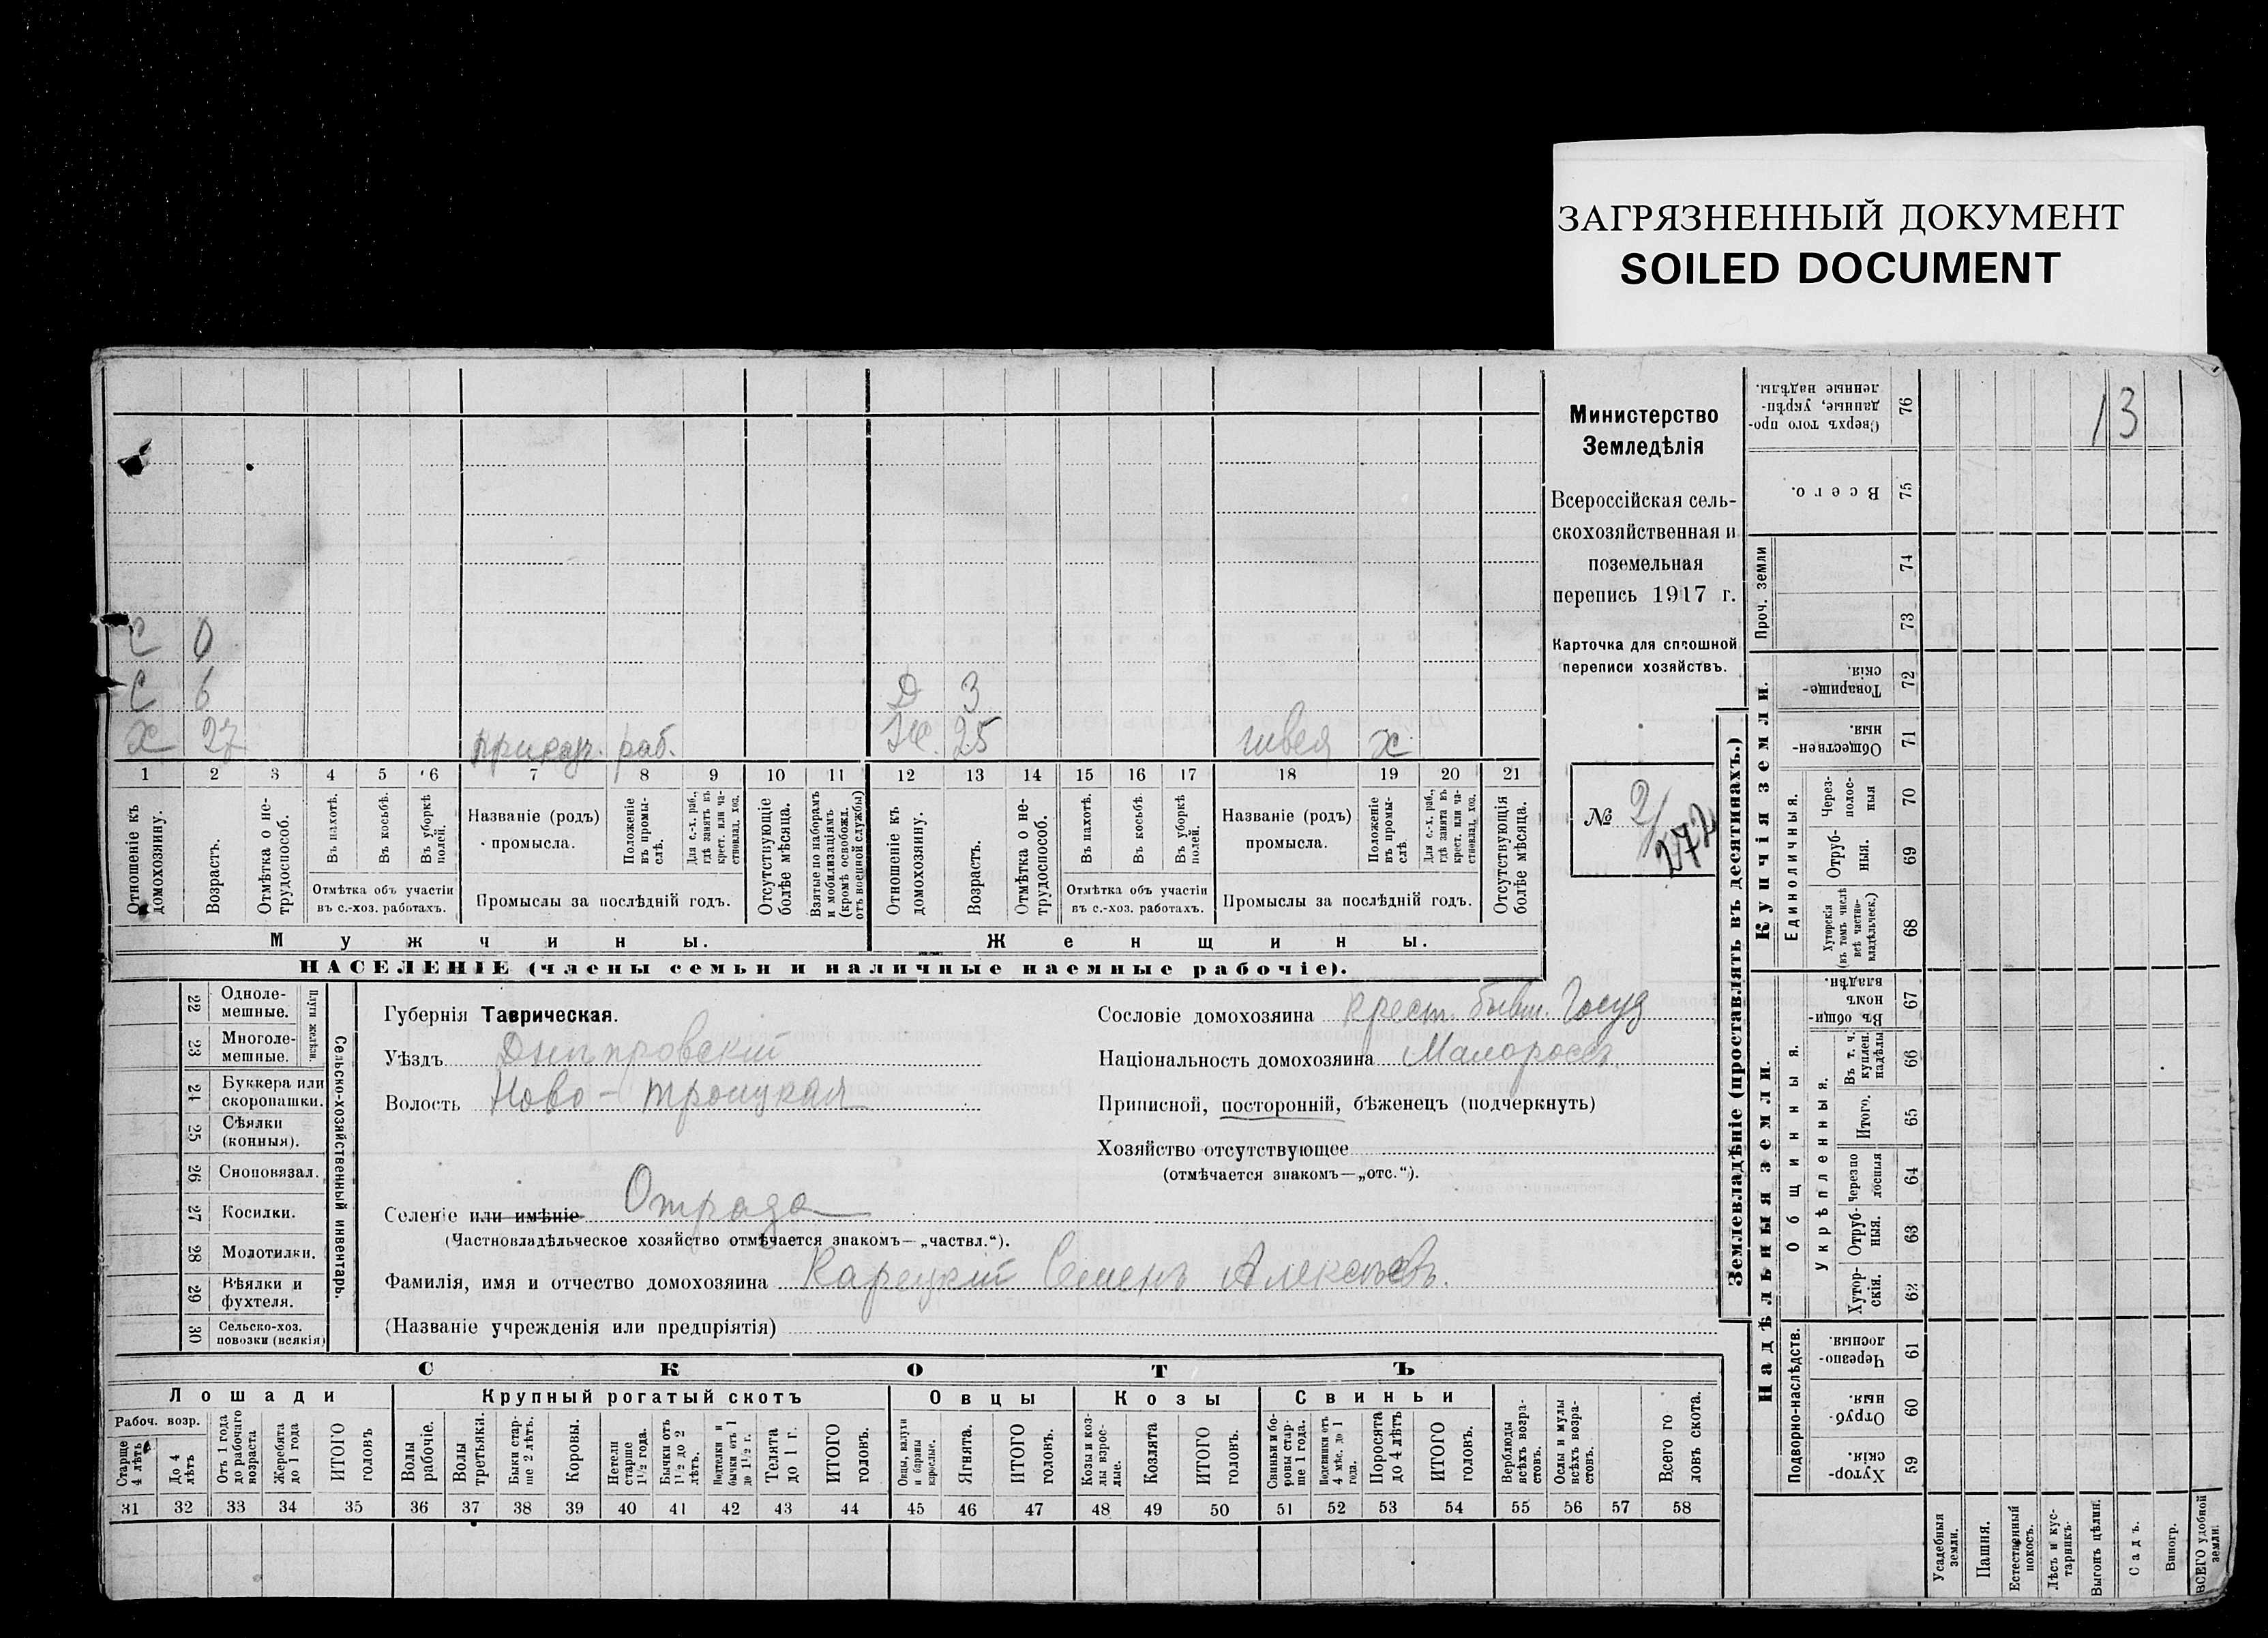 ЗАГРЯЗНЕННЫЙ ДОКУМЕНТ
SOILED DOCUMENT
13
Министерство
Земледѣлія
Всероссійская сель-
скохозяйственная и
поземельная
перепись 1917 г.
Карточка для сплошной
переписи хозяйствъ.
№ 2/
272
С 0
С 6 Д 3
Х 27 раб. Ж. 25 швея х
1 2 3 4 5 6 7 8 9 10 11 12 13 14 15 16 17 18 19 20 21
Отношеніе къ домохозяину.
Возрастъ.
Отмѣтка о не-трудоспособ.
Въ пахотѣ.
Въ косьбѣ.
Въ уборкѣ полей.
Отмѣтка объ участіи
въ с.-хоз. работахъ.
Названіе (родъ)
промысла.
Положеніе въ промы-слѣ.
Для с.-х. раб., гдѣ занятъ въ крест. или ча-стновлад. хоз.
Промыслы за послѣдній годъ.
Отсутствующіе болѣе мѣсяца.
Взятые по наборамъ и мобилизаціямъ (кромѣ освобожд. отъ военной службы)
Отношеніе къ домохозяину.
Возрастъ.
Отмѣтка о не-трудоспособ.
Въ пахотѣ.
Въ косьбѣ.
Въ уборкѣ полей.
Отмѣтка объ участіи
въ с.-хоз. работахъ.
Названіе (родъ)
промысла.
Положеніе въ промы-слѣ
Для с.-х. раб., гдѣ занята въ крест. или ча-стновлад. хоз.
Промыслы за послѣдній годъ.
Отсутствующія болѣе мѣсяца.
Мужчины. Женщины.
НАСЕЛЕНІЕ (члены семьи и наличные наемные рабочіе).
22 Одноле-мешные.
23 Многоле-мешные.
Плуги желѣзн.
24 Буккера или скоропашки.
25 Сѣялки (конныя).
26 Сноповязал.
27 Косилки.
28 Молотилки.
29 Вѣялки и фухтеля.
30 Сельско-хоз. повозки (всякія)
Сельско-хозяйственный инвентарь.
Губернія Таврическая.
Уѣздъ Днѣпровскій
Волость Ново-Троицкая
Сословіе домохозяина крест. бывш. Госуд
Національность домохозяина Малоросс.
Приписной, посторонній, бѣженецъ (подчеркнуть)
Хозяйство отсутствующее
(отмѣчается знакомъ—„отс.“).
Селеніе или имѣніе Отрада
(Частновладѣльческое хозяйство отмѣчается знакомъ—„частвл.“).
Фамилія, имя и отчество домохозяина Карецкій Семенъ Алексѣевъ.
(Названіе учрежденія или предпріятія)
СКОТЪ
Лошади Крупный рогатый скотъ Овцы Козы Свиньи
Рабоч. возр.
Старше 4 лѣтъ
До 4 лѣтъ
Отъ 1 года до рабочаго возраста
Жеребята до 1 года
ИТОГО головъ
Волы рабочіе.
Волы третьяки.
Быки стар-ше 2 лѣтъ.
Коровы.
Нетели старше 1½ года.
Бычки отъ 1½ до 2 лѣтъ.
Подтелки и бычки отъ 1 до 1½ г.
Телята до 1 г.
ИТОГО головъ.
Овцы, валухи и бараны взрослые.
Ягнята.
ИТОГО головъ.
Козы и коз-лы взрос-лые.
Козлята
ИТОГО головъ.
Свиньи и бо-ровы стар-ше 1 года.
Подсвинки отъ 4 мѣс. до 1 года.
Поросята до 4 лѣтъ
ИТОГО головъ.
Верблюды всѣхъ возра-стовъ.
Ослы и мулы всѣхъ возра-стовъ.
Всего головъ скота.
31 32 33 34 35 36 37 38 39 40 41 42 43 44 45 46 47 48 49 50 51 52 53 54 55 56 57 58
Землевладѣніе (проставлять въ десятинахъ.)
Купчія земли.
Надѣльныя земли.
Сверхъ того про-данные, укрѣп-ленные надѣлы. 76
Всего. 75
Проч. земли 74
73
Товарище-скія. 72
Обществен-ныя. 71
Единоличныя.
Через-полос-ныя 70
Отруб-ныя. 69
Хуторскія (въ томъ числѣ всѣ частно-владѣльческ.) 68
Общинныя.
Въ общи-номъ владѣн. 67
Укрѣпленныя.
Въ т. ч. куплен. надѣлы 66
Итого. 65
Черезпо лосныя 64
Отруб-ныя. 63
Хутор-скія. 62
Подворно-наслѣдств.
Черезпо-лосныя. 61
Отруб-ныя. 60
Хутор-скія. 59
Усадебныя земли.
Пашня.
Естественный покосъ.
Лѣсъ и кус-тарникъ.
Выгонъ цѣлин.
Садъ.
Виногр.
ВСЕГО удобной земли.